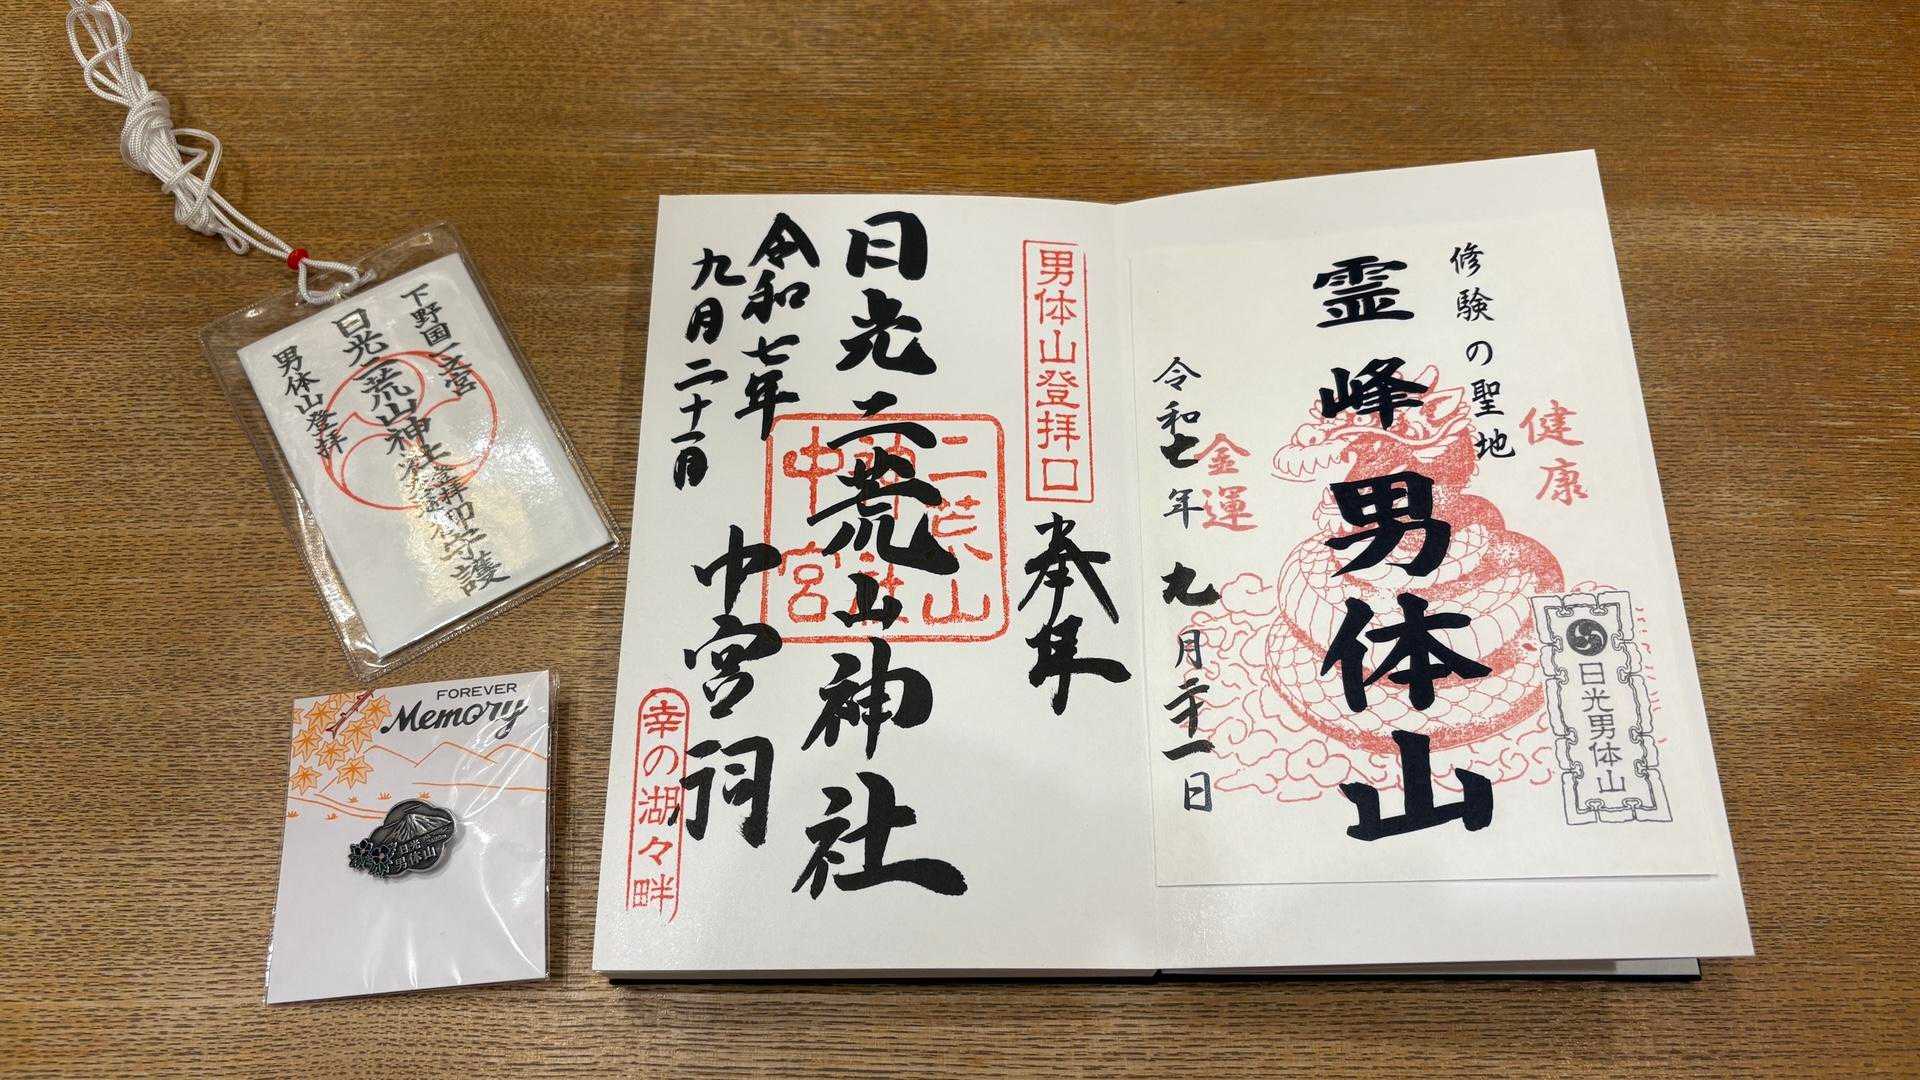 下野国一之宮
日光二荒山神社登拝御守護
男体山登拝
FOREVER
Memory
日光
男体山
男体山登拝口
奉拝
日光二荒山神社
二荒山
神社
中宮
令和七年
九月二十一日
中宮祠
幸の湖々畔
修験の聖地
健康
霊峰男体山
金運
令和七年九月二十一日
日光男体山